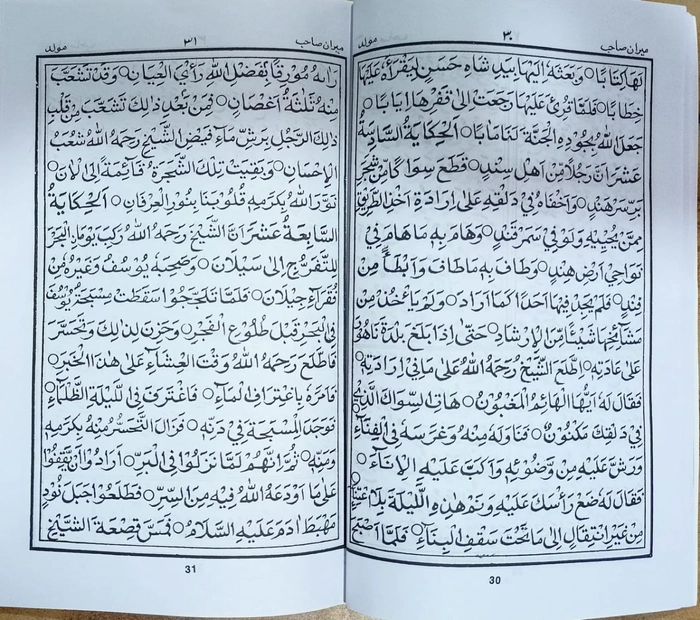 ميران صاحب ٣٠ مولد
لَهَا كِتَابًا ○ وَبَعَثَهٗ اِلَيْهَا بِيَدِ شَاهِ حُسَيْنٍ لِيَقْرَأَهٗ عَلَيْهَا
خِطَابًا ○ فَلَمَّا قُرِئَ عَلَيْهَا رَجَعَتْ اِلٰى قَفْرِهَا اِيَابًا ○
جَعَلَ اللّٰهُ بِجُوْدِهِ الْجَنَّةَ لَنَا مَاٰبًا ○ اَلْحِكَايَةُ السَّادِسَةُ
عَشْرَ اَنَّ رَجُلًا مِّنْ اَهْلِ سِنْدٍ ○ قَطَعَ سِوَاكًا مِّنْ شَجَرِ
بَرِّ سَرْهَنْدٍ ○ وَاَخْفَاهُ فِيْ دَلْقِهٖ عَلٰى اِرَادَةِ اَخْذِ الطَّرِيْقِ
مِمَّنْ يُحْيِيْهِ وَلَوْ فِيْ سَمَرْقَنْدٍ ○ وَهَامَ بِهٖ مَا هَامَ فِيْ
نَوَاحِيْ اَرْضِ هِنْدٍ ○ وَطَافَ بِهٖ مَا طَافَ وَاَبْطَأَ مِنْ
فِنْدٍ ○ فَلَمْ يَجِدْ فِيْهَا اَحَدًا كَمَا اَرَادَ ○ وَلَمْ يَأْخُذْ مِنْ
مَشَائِخِهَا شَيْئًا مِّنَ الْاِرْشَادِ ○ حَتّٰى اِذَا بَلَغَ بَلْدَةَ نَاهُوْرَ
عَلٰى عَادَتِهٖ ○ اِطَّلَعَ الشَّيْخُ رَحِمَهُ اللّٰهُ عَلٰى مَا فِيْ اِرَادَتِهٖ ○
فَقَالَ لَهٗ اَيُّهَا الْهَائِمُ الْمَغْبُوْنُ ○ هَاتِ السِّوَاكَ الَّذِيْ
فِيْ دَلْقِكَ مَكْنُوْنٌ ○ فَنَاوَلَهٗ مِنْهُ وَغَرَسَهٗ فِي الْفِنَاءِ ○
وَرَشَّ عَلَيْهِ مِنْ وَضُوْئِهٖ وَاَكَبَّ عَلَيْهِ الْاِنَاءَ ○
فَقَالَ لَهٗ ضَعْ رَأْسَكَ عَلَيْهِ وَنَمْ هٰذِهِ اللَّيْلَةَ بِلَا عَنَاءٍ ○
مِنْ غَيْرِ انْتِقَالٍ اِلٰى مَا تَحْتَ سَقْفِ الْبِنَاءِ ○ فَلَمَّا اَصْبَحَ
30
ميران صاحب ٣١ مولد
رَاٰهُ مُوْرِقًا بِفَضْلِ اللّٰهِ رَأْيَ الْعِيَانِ ○ وَقَدْ تَشَعَّبَ
مِنْهُ ثَلٰثَةُ اَغْصَانٍ ○ فَمِنْ بَعْدِ ذٰلِكَ تَشَعَّبَ مِنْ قَلْبِ
ذٰلِكَ الرَّجُلِ بِرَشِّ مَاءِ فَيْضِ الشَّيْخِ رَحِمَهُ اللّٰهُ شُعَبُ
الْاِحْسَانِ ○ وَبَقِيَتْ تِلْكَ الشَّجَرَةُ قَائِمَةً اِلَى الْاٰنَ ○
نَوَّرَ اللّٰهُ بِكَرَمِهٖ قُلُوْبَنَا بِنُوْرِ الْعِرْفَانِ ○ اَلْحِكَايَةُ
السَّابِعَةُ عَشْرَ اَنَّ الشَّيْخَ رَحِمَهُ اللّٰهُ رَكِبَ يَوْمًا الْبَحْرَ
لِلتَّفَرُّجِ اِلٰى سَيْلَانَ ○ وَصَحِبَهٗ يُوْسُفُ وَغَيْرُهٗ مِنْ
فُقَرَاءِ جِيْلَانَ ○ فَلَمَّا تَلَجَّجُوْا سَقَطَتْ مِسْبَحَةُ يُوْسُفَ
فِي الْبَحْرِ قَبْلَ طُلُوْعِ الْفَجْرِ ○ وَحَزِنَ لِذٰلِكَ وَتَحَسَّرَ
فَاطَّلَعَ رَحِمَهُ اللّٰهُ وَقْتَ الْعِشَاءِ عَلٰى هٰذَا الْخَبَرِ ○
فَاَمَرَهٗ بِاغْتِرَافِ الْمَاءِ ○ فَاغْتَرَفَ فِي اللَّيْلَةِ الظَّلْمَاءِ ○
فَوَجَدَ الْمِسْبَحَةَ فِيْ دَرَنِهٖ ○ فَزَالَ التَّحَسُّرُ مِنْهُ بِكَرَمِهٖ
وَمَنِّهٖ ○ ثُمَّ اِنَّهُمْ لَمَّا نَزَلُوْا فِي الْبَرِّ ○ اَرَادُوْا اَنْ يَّقِفُوْا
عَلٰى مَا اَوْدَعَهُ اللّٰهُ فِيْهِ مِنَ السِّرِّ ○ فَطَلَعُوْا جَبَلَ نُوْدٍ
مَهْبِطَ اٰدَمَ عَلَيْهِ السَّلَامُ ○ فَمَسَّ قَصْعَةَ الشَّيْخِ
31